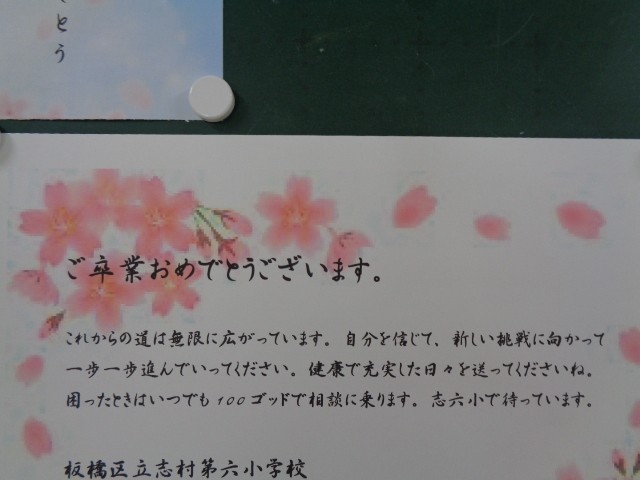 とう
ご卒業おめでとうございます。
これからの道は無限に広がっています。自分を信じて、新しい挑戦に向かって
一歩一歩進んでいってください。健康で充実した日々を送ってくださいね。
困ったときはいつでも100ゴッドで相談に乗ります。志六小で待っています。
板橋区立志村第六小学校